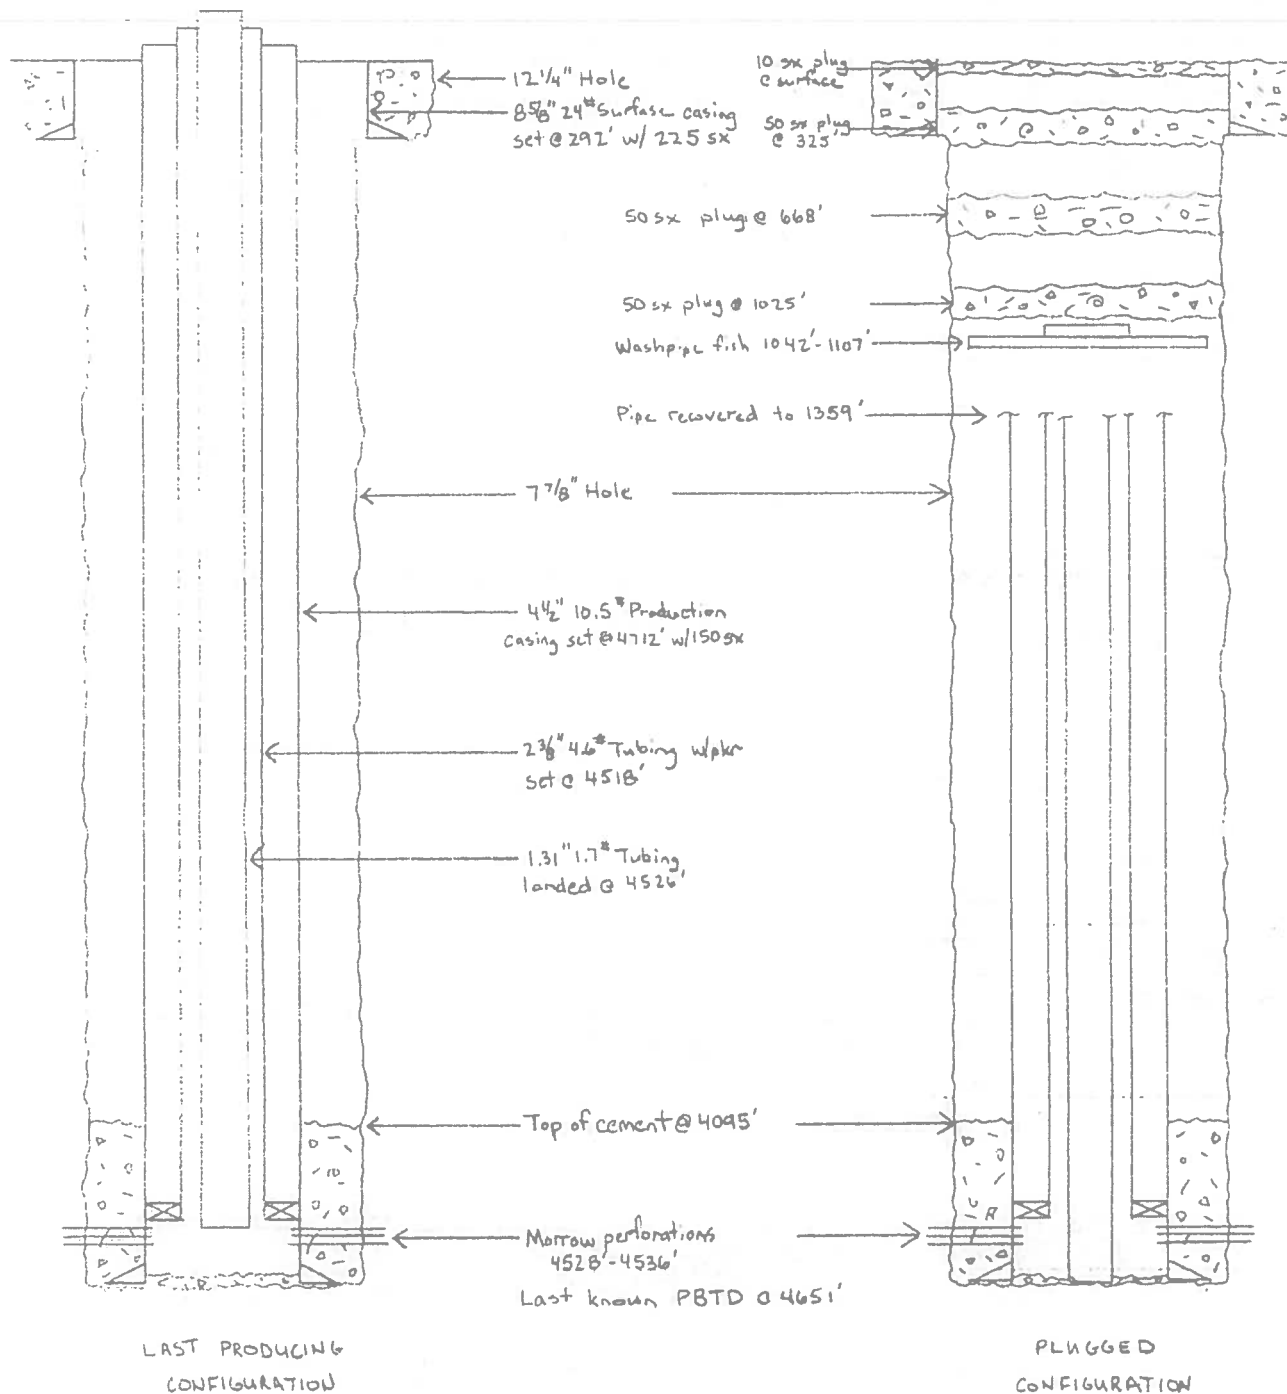 12 1/4" Hole
8 5/8" 24# Surface casing
set @ 292' w/ 225 sx
10 sx plug
@ surface
50 sx plug
@ 325'
50 sx plug @ 668'
50 sx plug @ 1025'
Washpipe fish 1042'-1107'
Pipe recovered to 1359'
7 7/8" Hole
4 1/2" 10.5# Production
casing set @ 4712' w/150 sx
2 3/8" 4.6# Tubing w/pkr
set @ 4518'
1.31" 1.7# Tubing
landed @ 4526'
Top of cement @ 4095'
Morrow perforations
4528'-4536'
Last known PBTD @ 4651'
LAST PRODUCING
CONFIGURATION
PLUGGED
CONFIGURATION